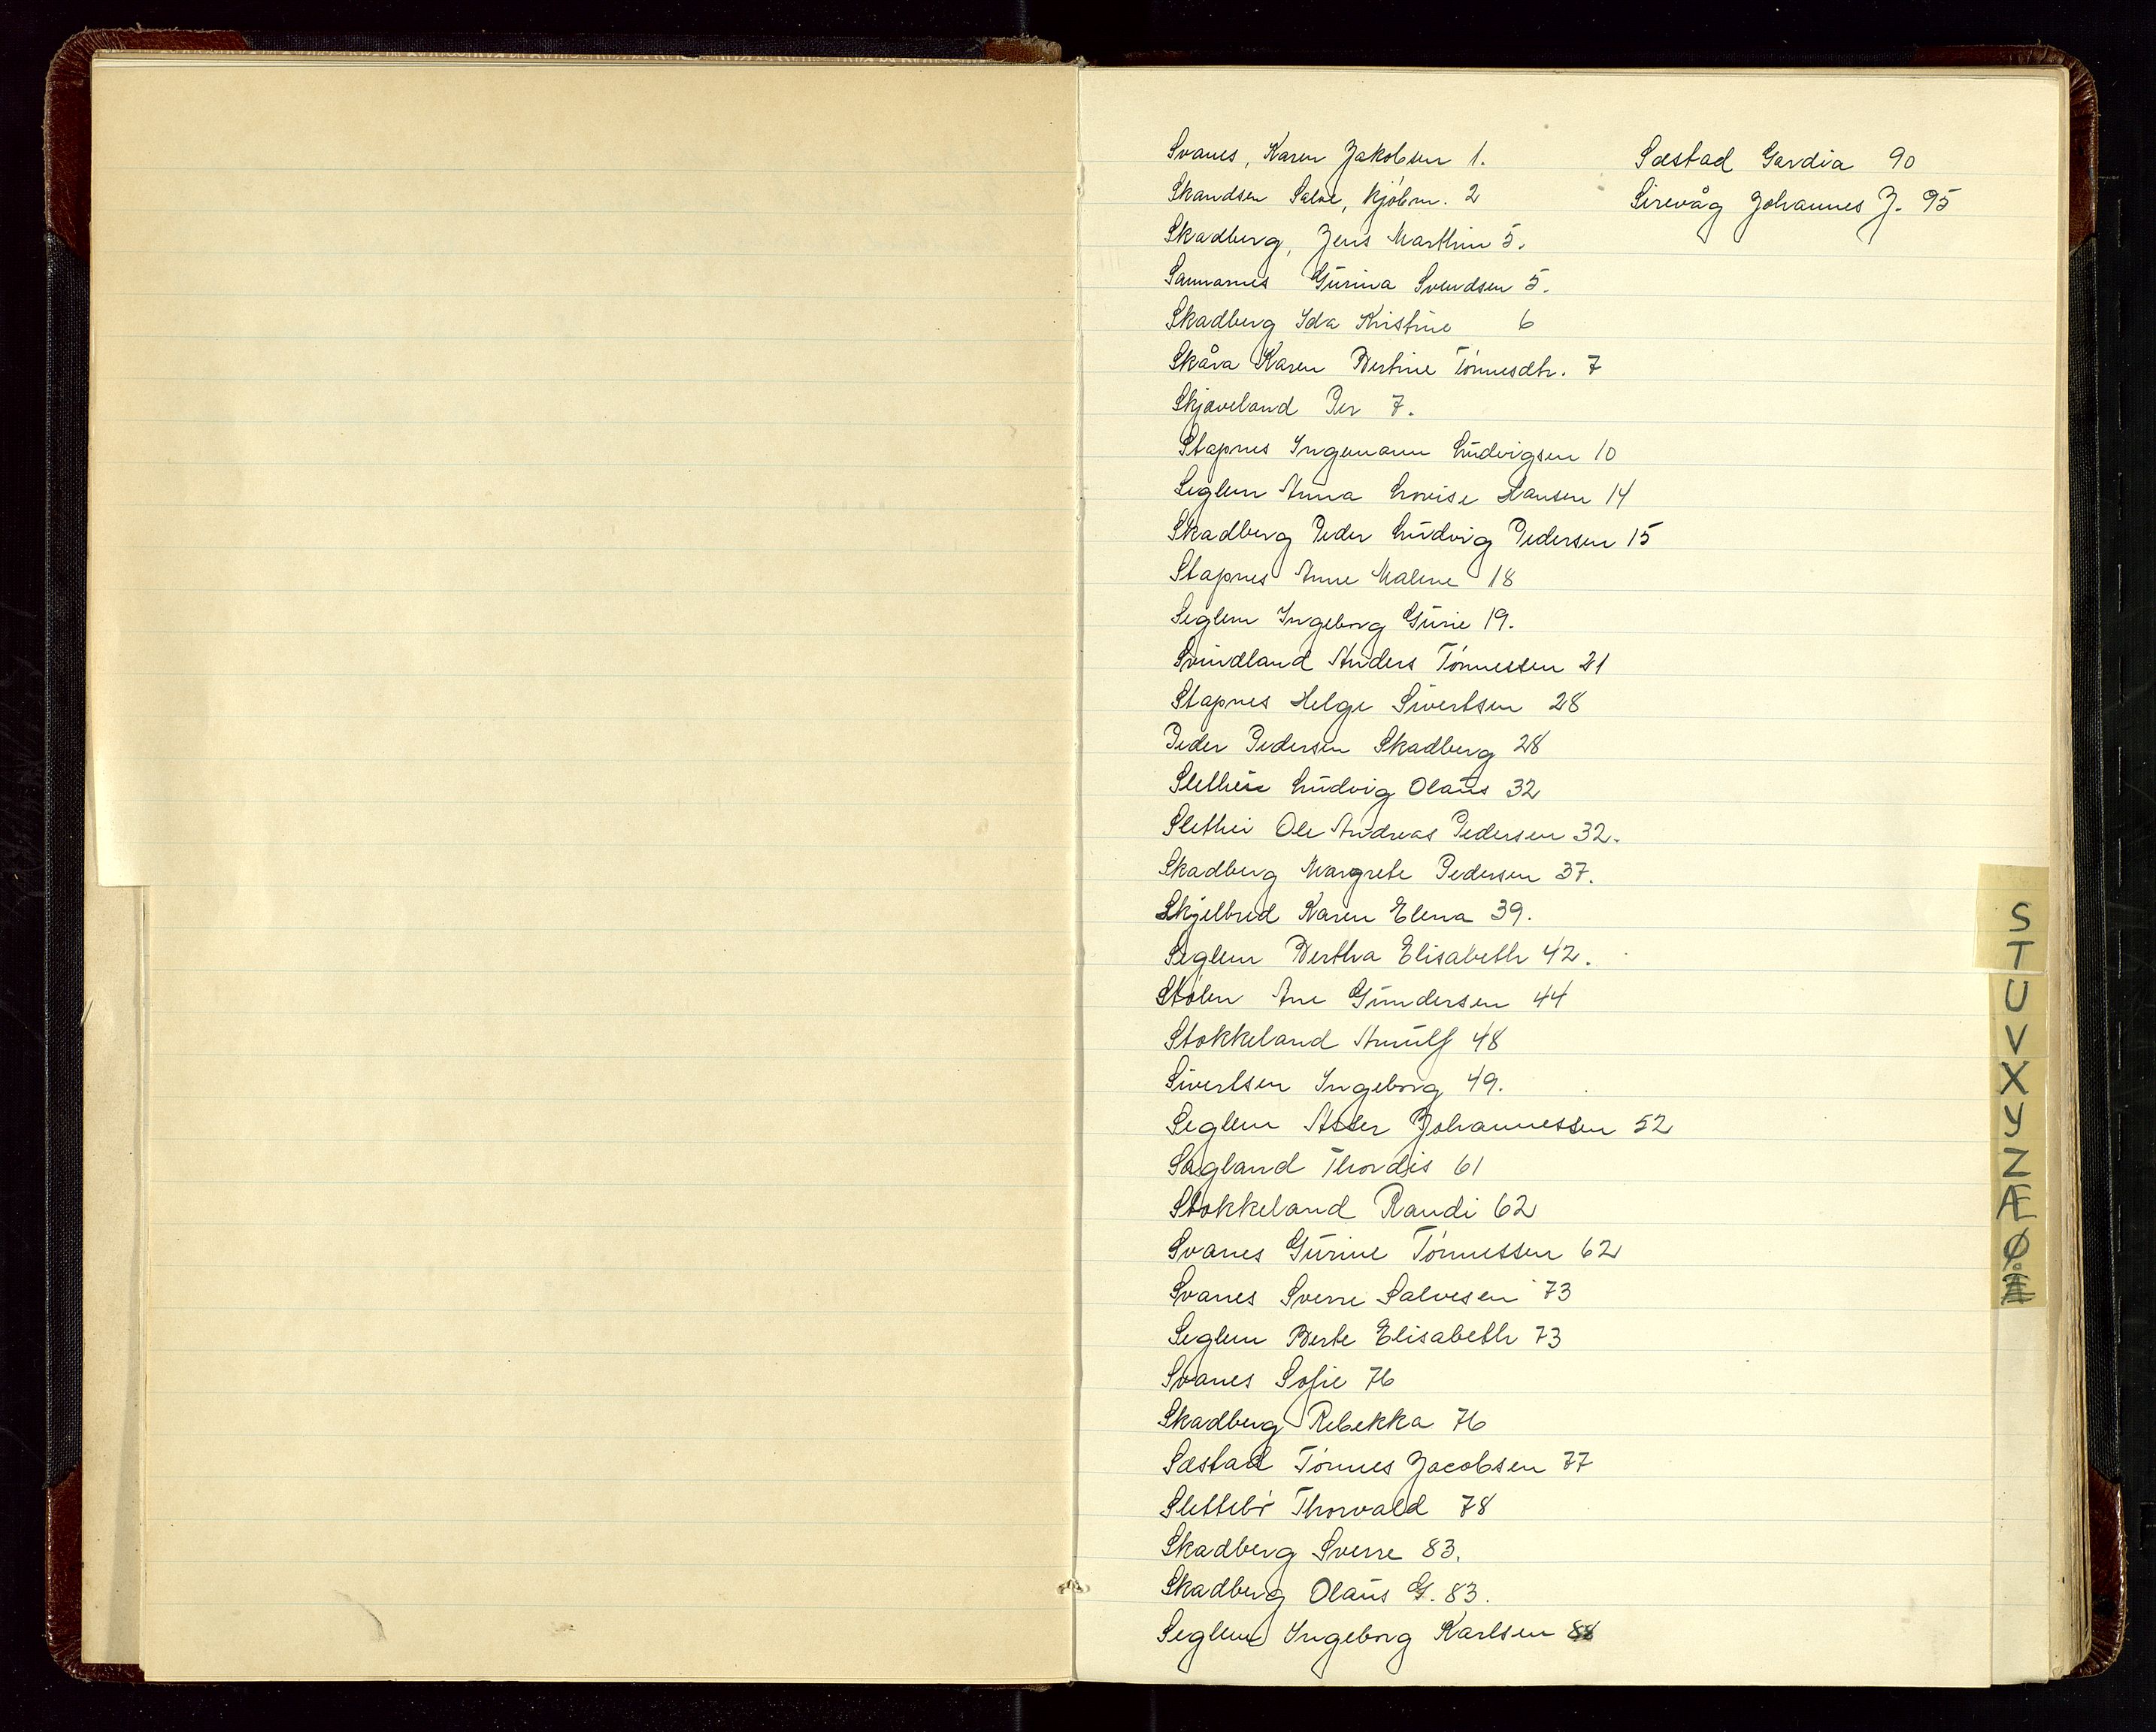 Svanes, Karen Jakobsen 1.
Skandsen Salve, kjøbm. 2
Skadberg, Jens Marthin 5.
Sannarnes Gurina Svendsen 5.
Skadberg Ida Kristine 6
Skåra Karen Bertine Tønnesdtr. 7
Skjæveland Per 7.
Stapnes Ingemann Ludvigsen 10
Seglem Anna Lovise Hansen 14
Skadberg Peder Ludvig Pedersen 15
Stapnes Anne Malene 18
Seglem Ingeborg Gurie 19.
Svindland Anders Tønnessen 21
Stapnes Helge Sivertsen 28
Peder Pedersen Skadberg 28
Slethei Ludvig Olaus 32
Slethei Ole Andreas Pedersen 32.
Skadberg Margrete Pedersen 37.
Skjelbred Karen Elena 39.
Seglem Bertha Elisabeth 42.
Stølen Ane Gundersen 44
Stokkeland Arnulf 48
Sivertsen Ingeborg 49.
Seglem Johannessen 52
Sagland Thordis 61
Stokkeland Randi 62
Svanes Gurine Tønnessen 62
Svanes Sverre Salvesen 73
Seglem Berte Elisabeth 73
Svanes Sofie 76
Skadberg Rebekka 76
Sæstad Tønnes Jacobsen 77
Slettebø Thorvald 78
Skadberg Sverre 83.
Skadberg Olaus G. 83.
Seglem Ingeborg Karlsen 88
Sæstad Gardia 90
Sirevåg Johannes J. 95
S
T
U
V
X
Y
Z
Æ
Ø